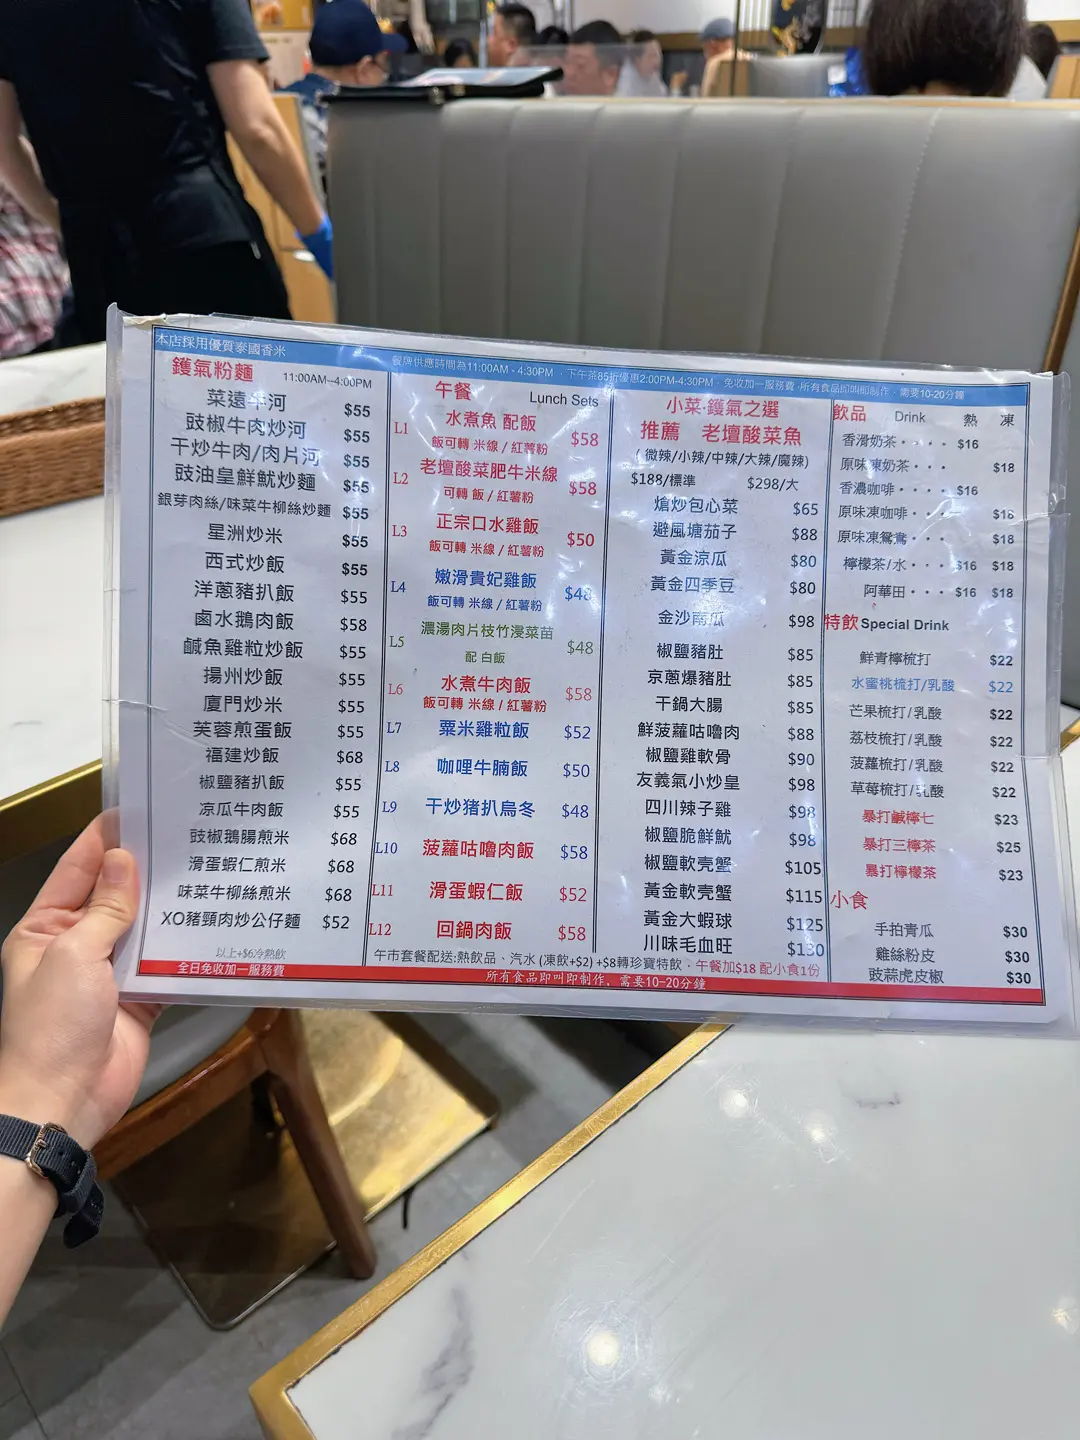 本店採用優質泰國香米
餐牌供應時間為11:00AM - 4:30PM · 下午茶85折優惠2:00PM-4:30PM · 免收加一服務費 ·所有食品即叫即制作 · 需要10-20分鐘
鑊氣粉麵 11:00AM--4:00PM
菜遠牛河 $55
豉椒牛肉炒河 $55
干炒牛肉/肉片河 $55
豉油皇鮮魷炒麵 $55
銀芽肉絲/味菜牛柳絲炒麵 $55
星洲炒米 $55
西式炒飯 $55
洋蔥豬扒飯 $55
鹵水鵝肉飯 $58
鹹魚雞粒炒飯 $55
揚州炒飯 $55
廈門炒米 $55
芙蓉煎蛋飯 $55
福建炒飯 $68
椒鹽豬扒飯 $55
凉瓜牛肉飯 $55
豉椒鵝腸煎米 $68
滑蛋蝦仁煎米 $68
味菜牛柳絲煎米 $68
XO豬頸肉炒公仔麵 $52
以上+$6冷熱飲
午餐 Lunch Sets
L1 水煮魚 配飯 $58
飯可轉 米線 / 紅薯粉
L2 老壇酸菜肥牛米線 $58
可轉 飯 / 紅薯粉
L3 正宗口水雞飯 $50
飯可轉 米線 / 紅薯粉
L4 嫩滑貴妃雞飯 $48
飯可轉 米線 / 紅薯粉
L5 濃湯肉片枝竹浸菜苗 $48
配 白飯
L6 水煮牛肉飯 $58
飯可轉 米線 / 紅薯粉
L7 粟米雞粒飯 $52
L8 咖哩牛腩飯 $50
L9 干炒豬扒烏冬 $48
L10 菠蘿咕嚕肉飯 $58
L11 滑蛋蝦仁飯 $52
L12 回鍋肉飯 $58
午市套餐配送:熱飲品、汽水 (凍飲+$2) +$8轉珍寶特飲 · 午餐加$18 配小食1份
小菜·鑊氣之選
推薦 老壇酸菜魚
( 微辣/小辣/中辣/大辣/魔辣)
$188/標準 $298/大
熗炒包心菜 $65
避風塘茄子 $88
黃金涼瓜 $80
黃金四季豆 $80
金沙南瓜 $98
椒鹽豬肚 $85
京蔥爆豬肚 $85
干鍋大腸 $85
鮮菠蘿咕嚕肉 $88
椒鹽雞軟骨 $90
友義氣小炒皇 $98
四川辣子雞 $98
椒鹽脆鮮魷 $98
椒鹽軟壳蟹 $105
黃金軟壳蟹 $115
黃金大蝦球 $125
川味毛血旺 $130
飲品 Drink 熱 凍
香滑奶茶 · · · · $16
原味凍奶茶 · · · $18
香濃咖啡 · · · · $16
原味凍咖啡 · · · $18
原味凍鴛鴦 · · · $18
檸檬茶/水 · · · $16 $18
阿華田 · · · $16 $18
特飲 Special Drink
鮮青檸梳打 $22
水蜜桃梳打/乳酸 $22
芒果梳打/乳酸 $22
荔枝梳打/乳酸 $22
菠蘿梳打/乳酸 $22
草莓梳打/乳酸 $22
暴打鹹檸七 $23
暴打三檸茶 $25
暴打檸檬茶 $23
小食
手拍青瓜 $30
雞絲粉皮 $30
豉蒜虎皮椒 $30
全日免收加一服務費
所有食品即叫即制作, 需要10-20分鐘